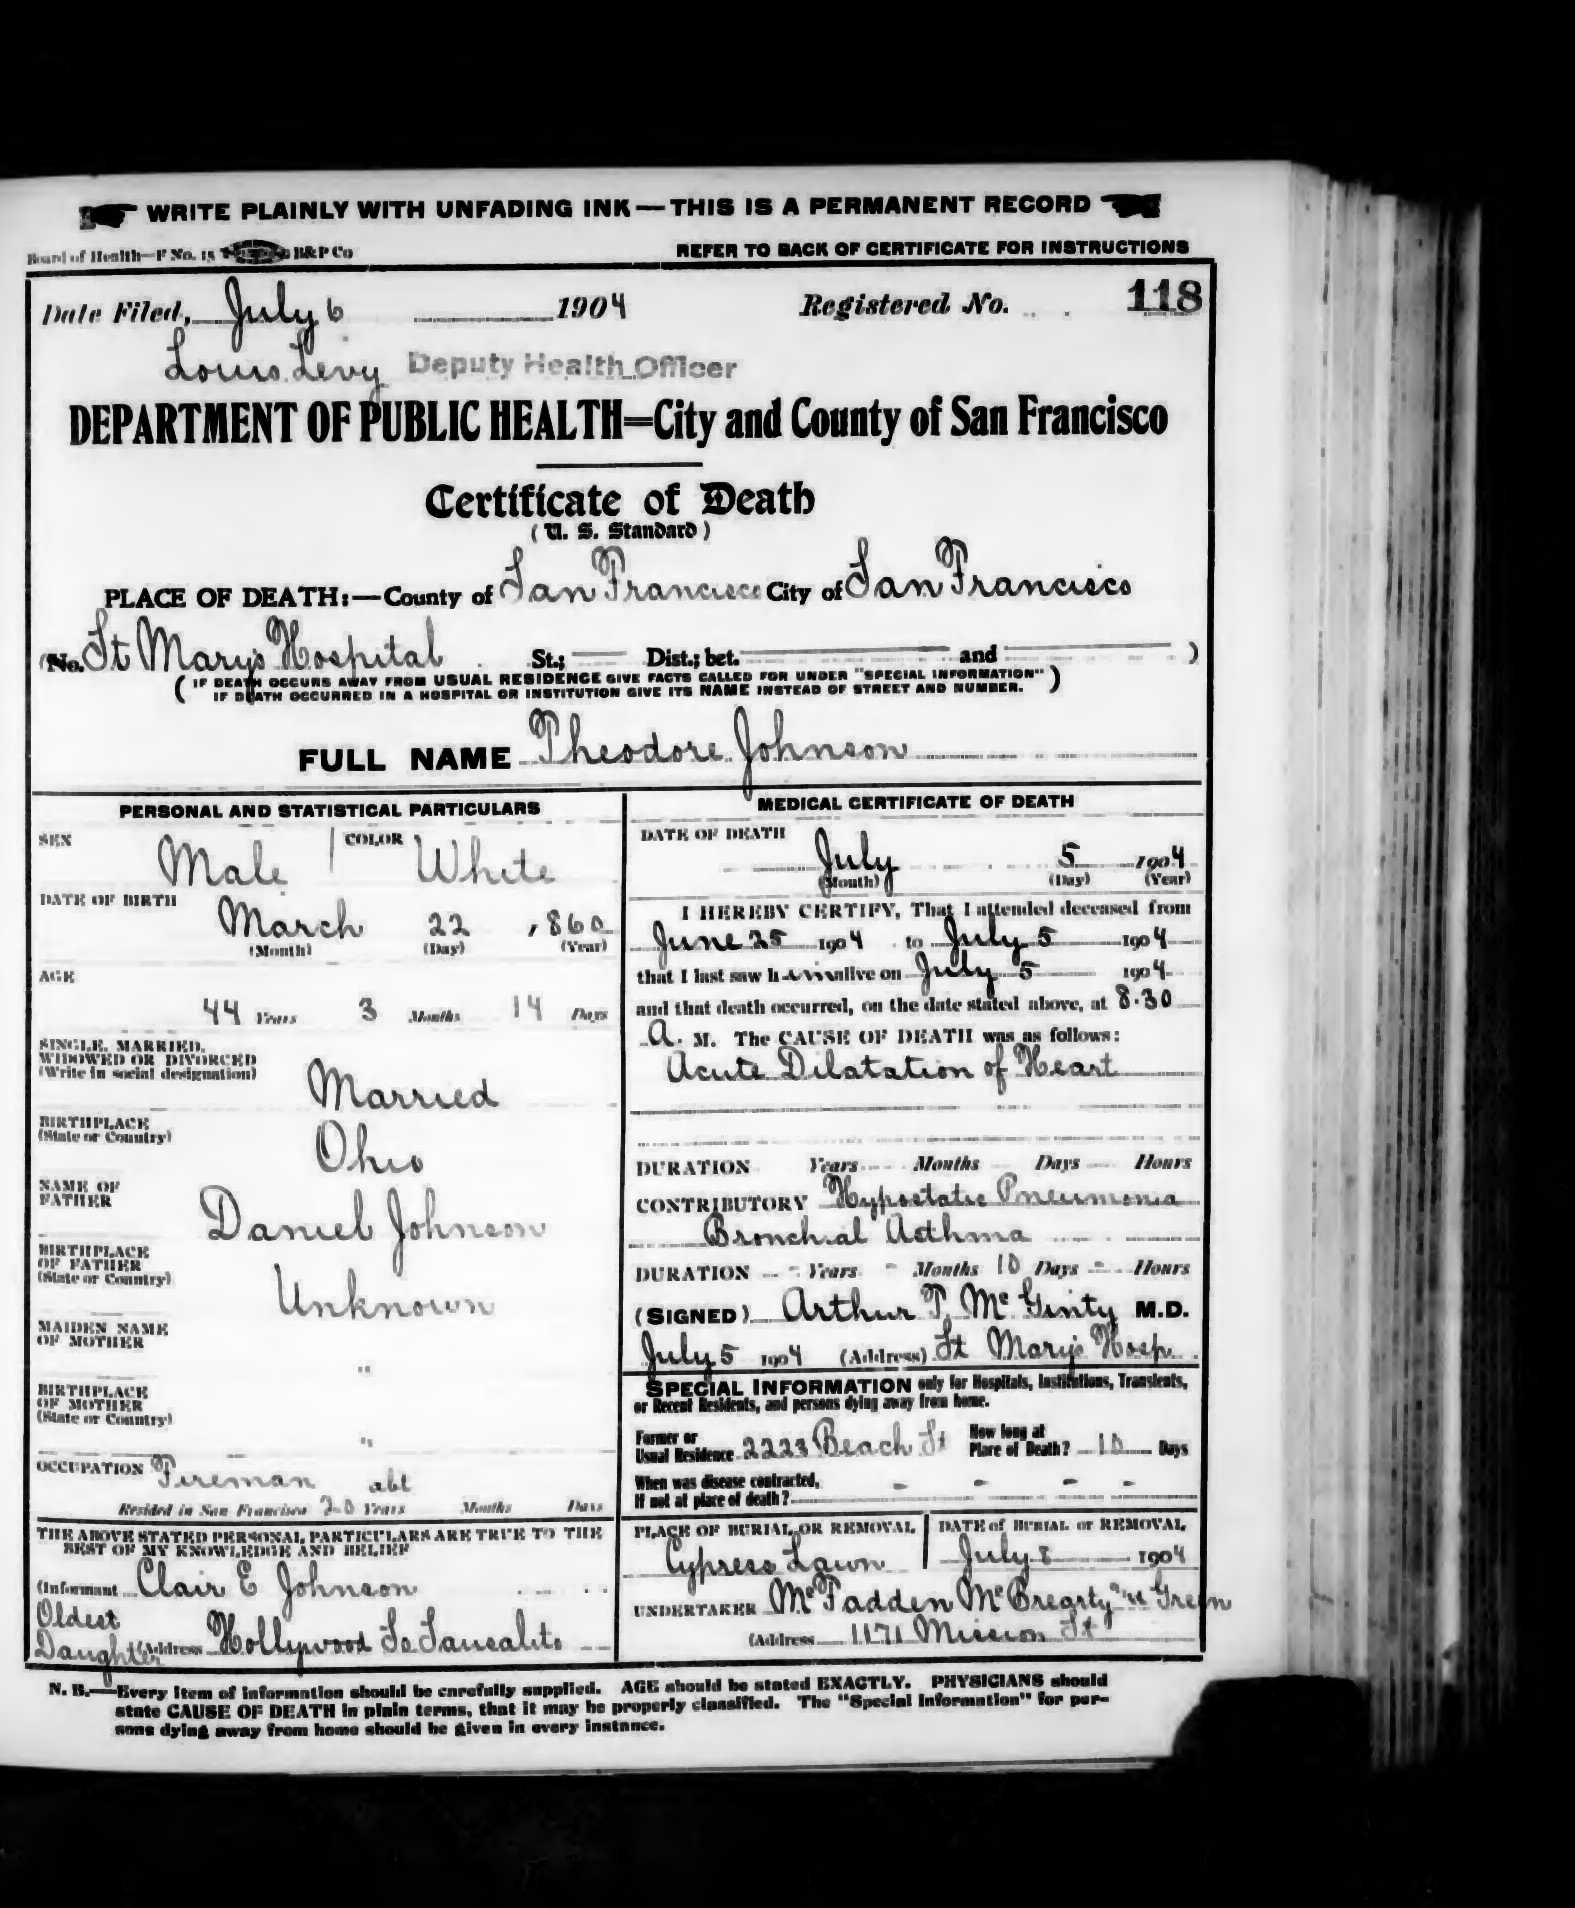 WRITE PLAINLY WITH UNFADING INK — THIS IS A PERMANENT RECORD
Board of Health—F No. 15 B&P Co
REFER TO BACK OF CERTIFICATE FOR INSTRUCTIONS
Date Filed, July 6 1904 Registered No. 118
Louis Levy Deputy Health Officer
DEPARTMENT OF PUBLIC HEALTH=City and County of San Francisco
Certificate of Death
(U. S. Standard)
PLACE OF DEATH:—County of San Francisco City of San Francisco
(No. St Mary's Hospital St.; Dist.; bet. and )
(IF DEATH OCCURS AWAY FROM USUAL RESIDENCE GIVE FACTS CALLED FOR UNDER "SPECIAL INFORMATION"
IF DEATH OCCURRED IN A HOSPITAL OR INSTITUTION GIVE ITS NAME INSTEAD OF STREET AND NUMBER.)
FULL NAME Theodore Johnson
PERSONAL AND STATISTICAL PARTICULARS
SEX Male COLOR White
DATE OF BIRTH
March 22 , 860
(Month) (Day) (Year)
AGE
44 Years 3 Months 14 Days
SINGLE, MARRIED,
WIDOWED OR DIVORCED
(Write in social designation)
Married
BIRTHPLACE
(State or Country)
Ohio
NAME OF
FATHER
Daniel Johnson
BIRTHPLACE
OF FATHER
(State or Country)
Unknown
MAIDEN NAME
OF MOTHER
"
BIRTHPLACE
OF MOTHER
(State or Country)
"
OCCUPATION Fireman abt
Resided in San Francisco 20 Years Months Days
THE ABOVE STATED PERSONAL PARTICULARS ARE TRUE TO THE
BEST OF MY KNOWLEDGE AND BELIEF
(Informant Clair E Johnson
Oldest
Daughter (Address Hollywood So Sausalito
MEDICAL CERTIFICATE OF DEATH
DATE OF DEATH
July 5 1904
(Month) (Day) (Year)
I HEREBY CERTIFY, That I attended deceased from
June 25 1904 to July 5 1904
that I last saw h im alive on July 5 1904
and that death occurred, on the date stated above, at 8.30
A. M. The CAUSE OF DEATH was as follows:
Acute Dilatation of Heart
DURATION Years Months Days Hours
CONTRIBUTORY Hypostatic Pneumonia
Bronchial Asthma
DURATION - Years - Months 10 Days - Hours
(SIGNED) Arthur P. McGinty M.D.
July 5 1904 (Address) St Mary's Hosp.
SPECIAL INFORMATION only for Hospitals, Institutions, Transients,
or Recent Residents, and persons dying away from home.
Former or
Usual Residence 2223 Beach St
How long at
Place of Death? 10 Days
When was disease contracted,
If not at place of death? - - - -
PLACE OF BURIAL OR REMOVAL
Cypress Lawn
DATE of BURIAL or REMOVAL
July 8 1904
UNDERTAKER McFadden McBrearty and Green
(Address 1171 Mission St
N. B.—Every item of information should be carefully supplied. AGE should be stated EXACTLY. PHYSICIANS should
state CAUSE OF DEATH in plain terms, that it may be properly classified. The "Special Information" for per-
sons dying away from home should be given in every instance.